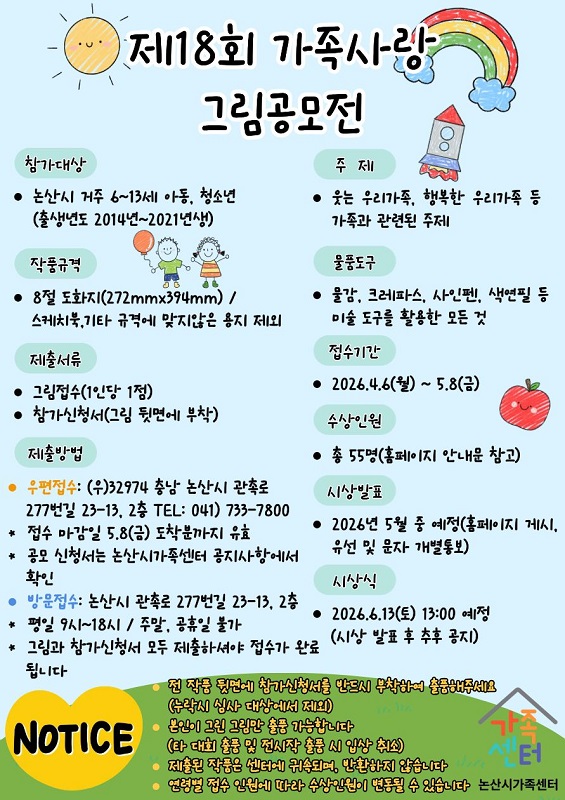 제18회 가족사랑
그림공모전
참가대상
● 논산시 거주 6~13세 아동, 청소년
(출생년도 2014년~2021년생)
작품규격
● 8절 도화지(272mmx394mm) /
스케치북,기타 규격에 맞지않은 용지 제외
제출서류
● 그림접수(1인당 1점)
● 참가신청서(그림 뒷면에 부착)
제출방법
● 우편접수: (우)32974 충남 논산시 관촉로
277번길 23-13, 2층 TEL: 041) 733-7800
* 접수 마감일 5.8(금) 도착분까지 유효
* 공모 신청서는 논산시가족센터 공지사항에서
확인
● 방문접수: 논산시 관촉로 277번길 23-13, 2층
* 평일 9시~18시 / 주말, 공휴일 불가
* 그림과 참가신청서 모두 제출하셔야 접수가 완료
됩니다
주 제
● 웃는 우리가족, 행복한 우리가족 등
가족과 관련된 주제
물품도구
● 물감, 크레파스, 사인펜, 색연필 등
미술 도구를 활용한 모든 것
접수기간
● 2026.4.6(월) ~ 5.8(금)
수상인원
● 총 55명(홈페이지 안내문 참고)
시상발표
● 2026년 5월 중 예정(홈페이지 게시,
유선 및 문자 개별통보)
시상식
● 2026.6.13(토) 13:00 예정
(시상 발표 후 추후 공지)
NOTICE
● 전 작품 뒷면에 참가신청서를 반드시 부착하여 출품해주세요
(누락시 심사 대상에서 제외)
● 본인이 그린 그림만 출품 가능합니다
(타 대회 출품 및 전시작 출품 시 입상 취소)
● 제출된 작품은 센터에 귀속되며, 반환하지 않습니다
● 연령별 접수 인원에 따라 수상인원이 변동될 수 있습니다
가족
센터
논산시가족센터